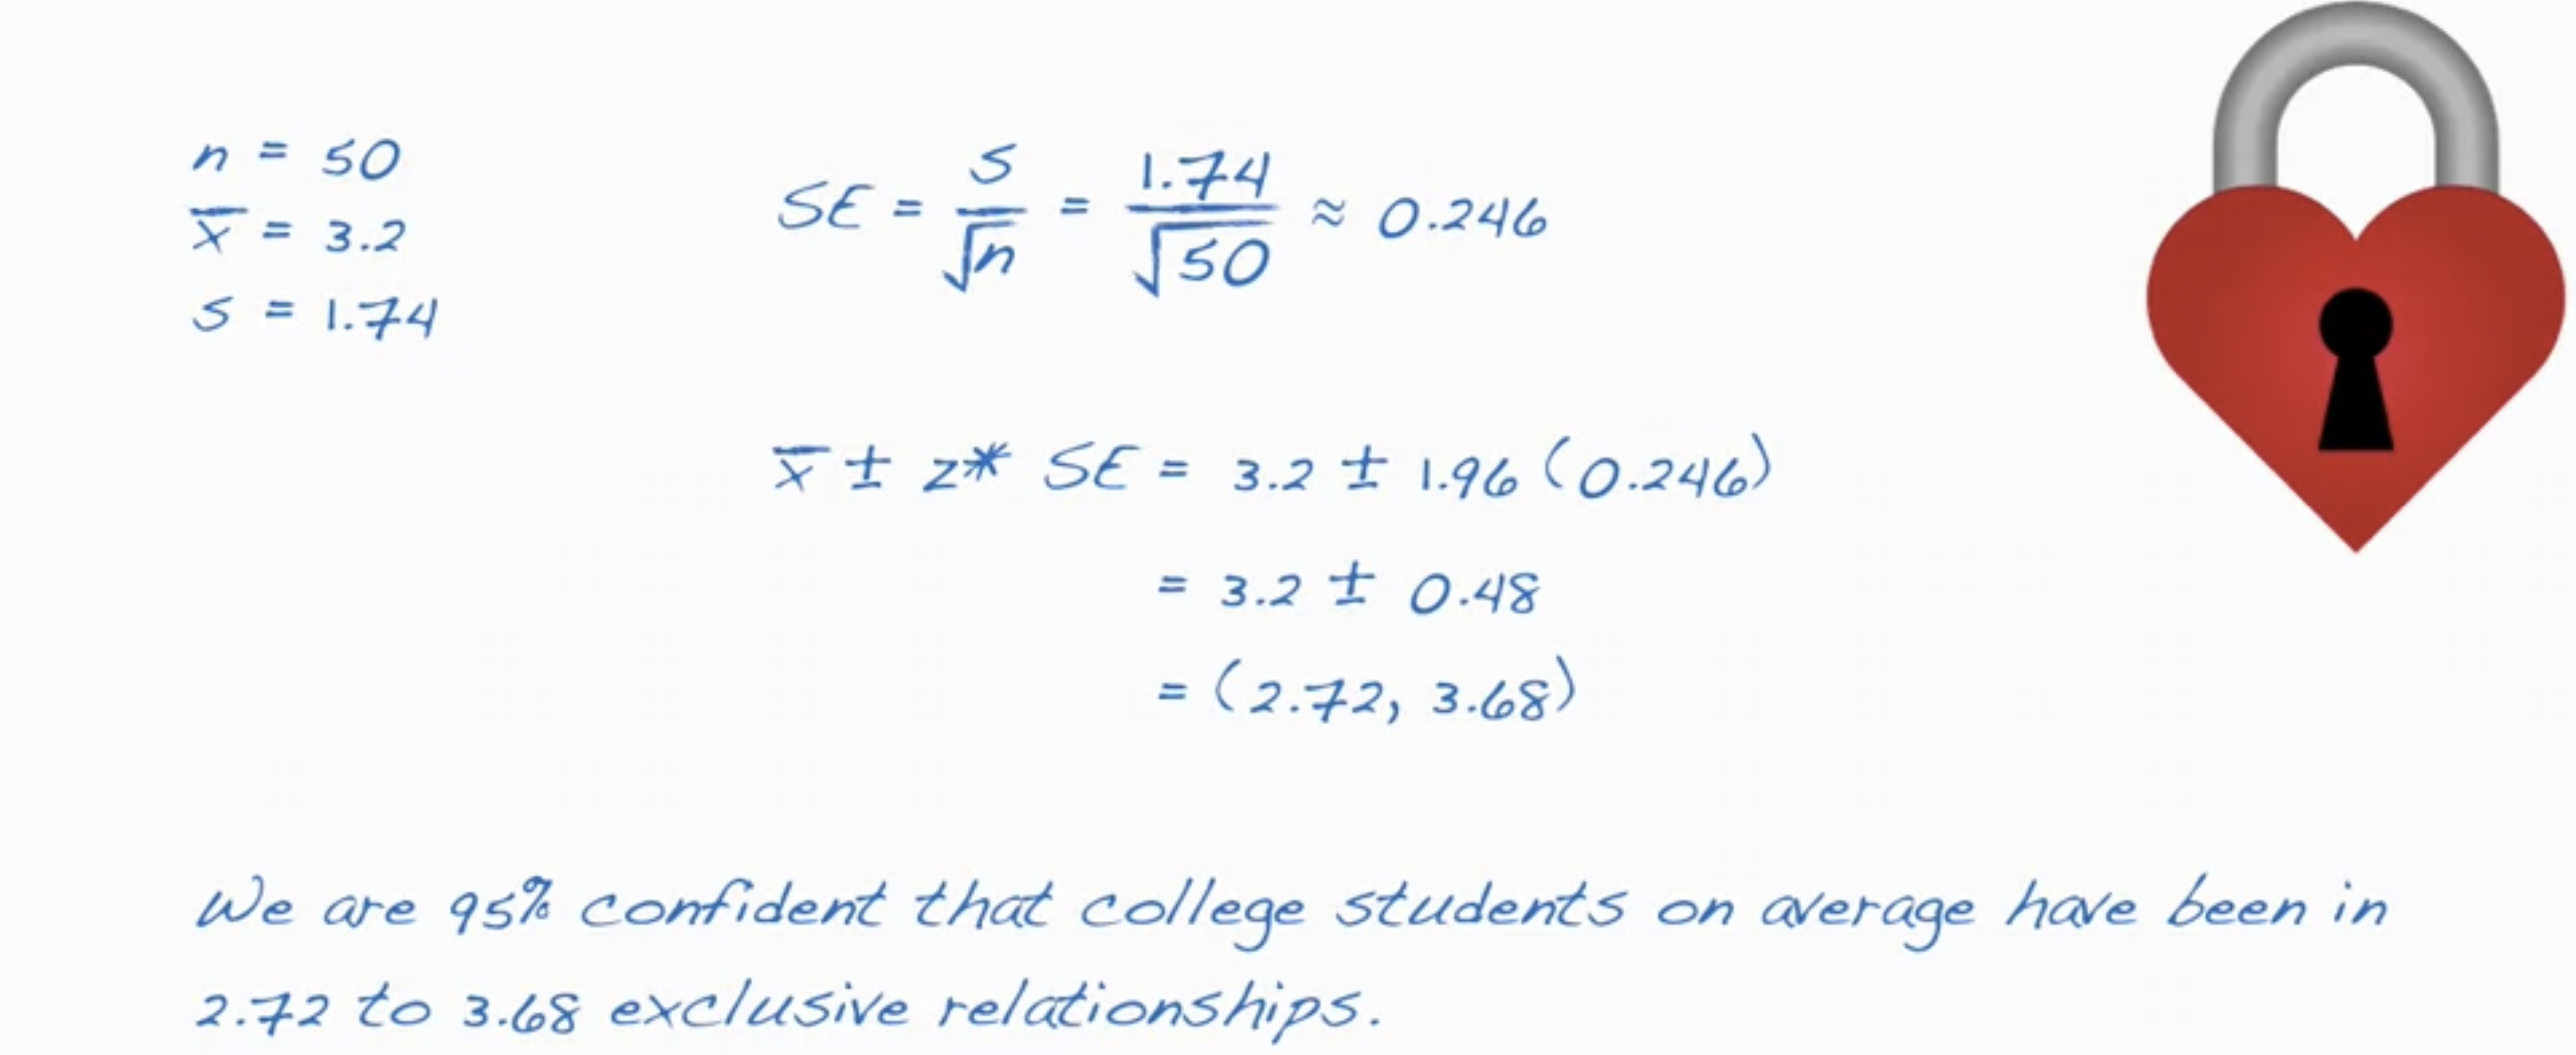 n = 50
x̄ = 3.2
s = 1.74
SE = s/√n = 1.74/√50 ≈ 0.246
x̄ ± z* SE = 3.2 ± 1.96 (0.246)
= 3.2 ± 0.48
= (2.72, 3.68)
We are 95% confident that college students on average have been in
2.72 to 3.68 exclusive relationships.